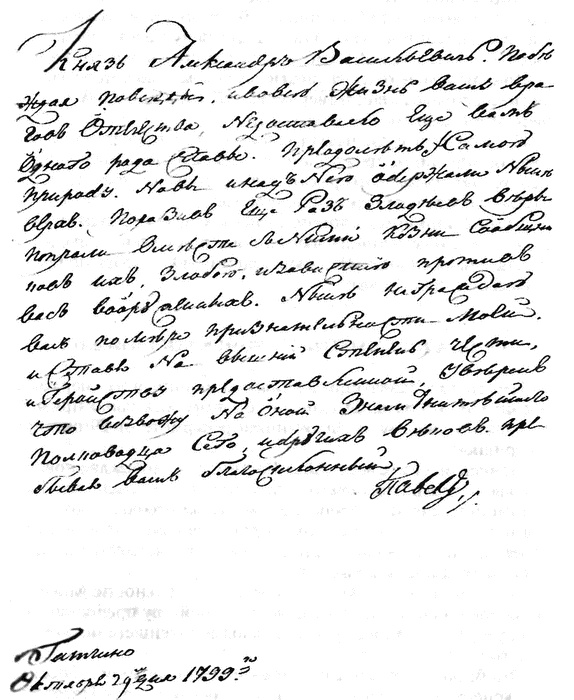 Князь Александръ Васильевичь. Побѣ
ждая повсюду, и во всю жизнь вашу вра
говъ Отечества, Недоставало Еще вамъ
Однаго рода Славы. Преодолеть и Самою
природу. Но вы и надъ Нею одержали Нынѣ
верьхъ. Поразивъ Еще Разъ Злодѣевъ Вѣры
попрали Вмѣсте съ Ними Козни Сообщни
ковъ ихъ, Злобою, и завистию противъ
васъ вооружаемыхъ. Нынѣ награждаю
васъ по мѣре признательности Моей.
и Ставя На высший Степень Чести,
и Геройства предоставленной, Увѣренъ
что возвожу На Оной Знаменитѣйшаго
Полководца Сего, и другихъ Вѣковъ. пре
бываю вамъ благосклонный,
Павелъ
Гатчино
Октября 29 дня 1799го